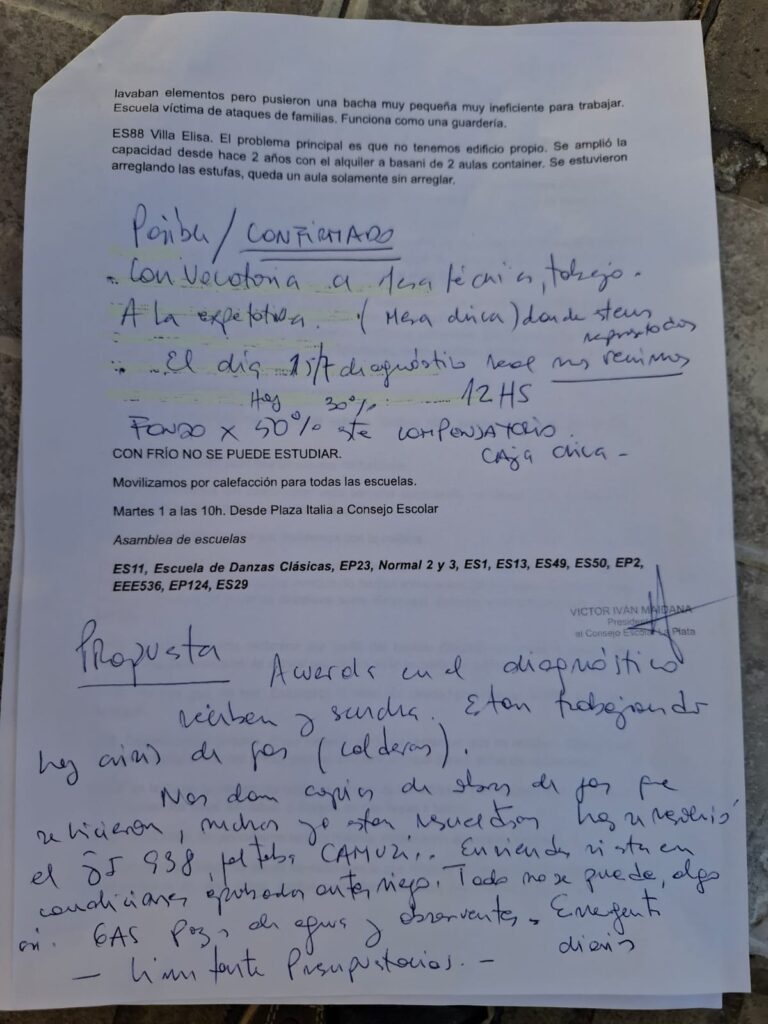 lavaban elementos pero pusieron una bacha muy pequeña muy ineficiente para trabajar.
Escuela víctima de ataques de familias. Funciona como una guardería.
ES88 Villa Elisa. El problema principal es que no tenemos edificio propio. Se amplió la
capacidad desde hace 2 años con el alquiler a basani de 2 aulas container. Se estuvieron
arreglando las estufas, queda un aula solamente sin arreglar.
/ CONFIRMADO
Convocatoria a técnica,
A la (Mesa chica) donde
El día 15/7 diagnóstico real nos reunimos
Hoy 30% 12 HS
FONDO x 50% este COMPENSATORIO.
CON FRÍO NO SE PUEDE ESTUDIAR.
CAJA chica -
Movilizamos por calefacción para todas las escuelas.
Martes 1 a las 10h. Desde Plaza Italia a Consejo Escolar
Asamblea de escuelas
ES11, Escuela de Danzas Clásicas, EP23, Normal 2 y 3, ES1, ES13, ES49, ES50, EP2,
EEE536, EP124, ES29
VICTOR IVÁN MAIDANA
Presidente
al Consejo Escolar La Plata
Propuesta Acuerda en el diagnóstico
reciben y . Estan trabajando
hay crisis de gas (calderas).
Nos dan copias de obras de gas que
se hicieron, muchos ya estan resueltos hoy se resolvió
el 938, faltaba CAMUZZI..
condiciones . Todo no se puede, algo
si. GAS Pozos de agua y . Emergente
diario
- Presupuestarios. -